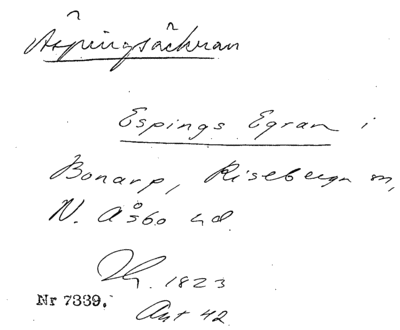 Äspingsäckran
Espings Egran i
Bonarp, Riseberga sn,
N. Åsbo hd.
1823
Nr 7339.
Ant 42